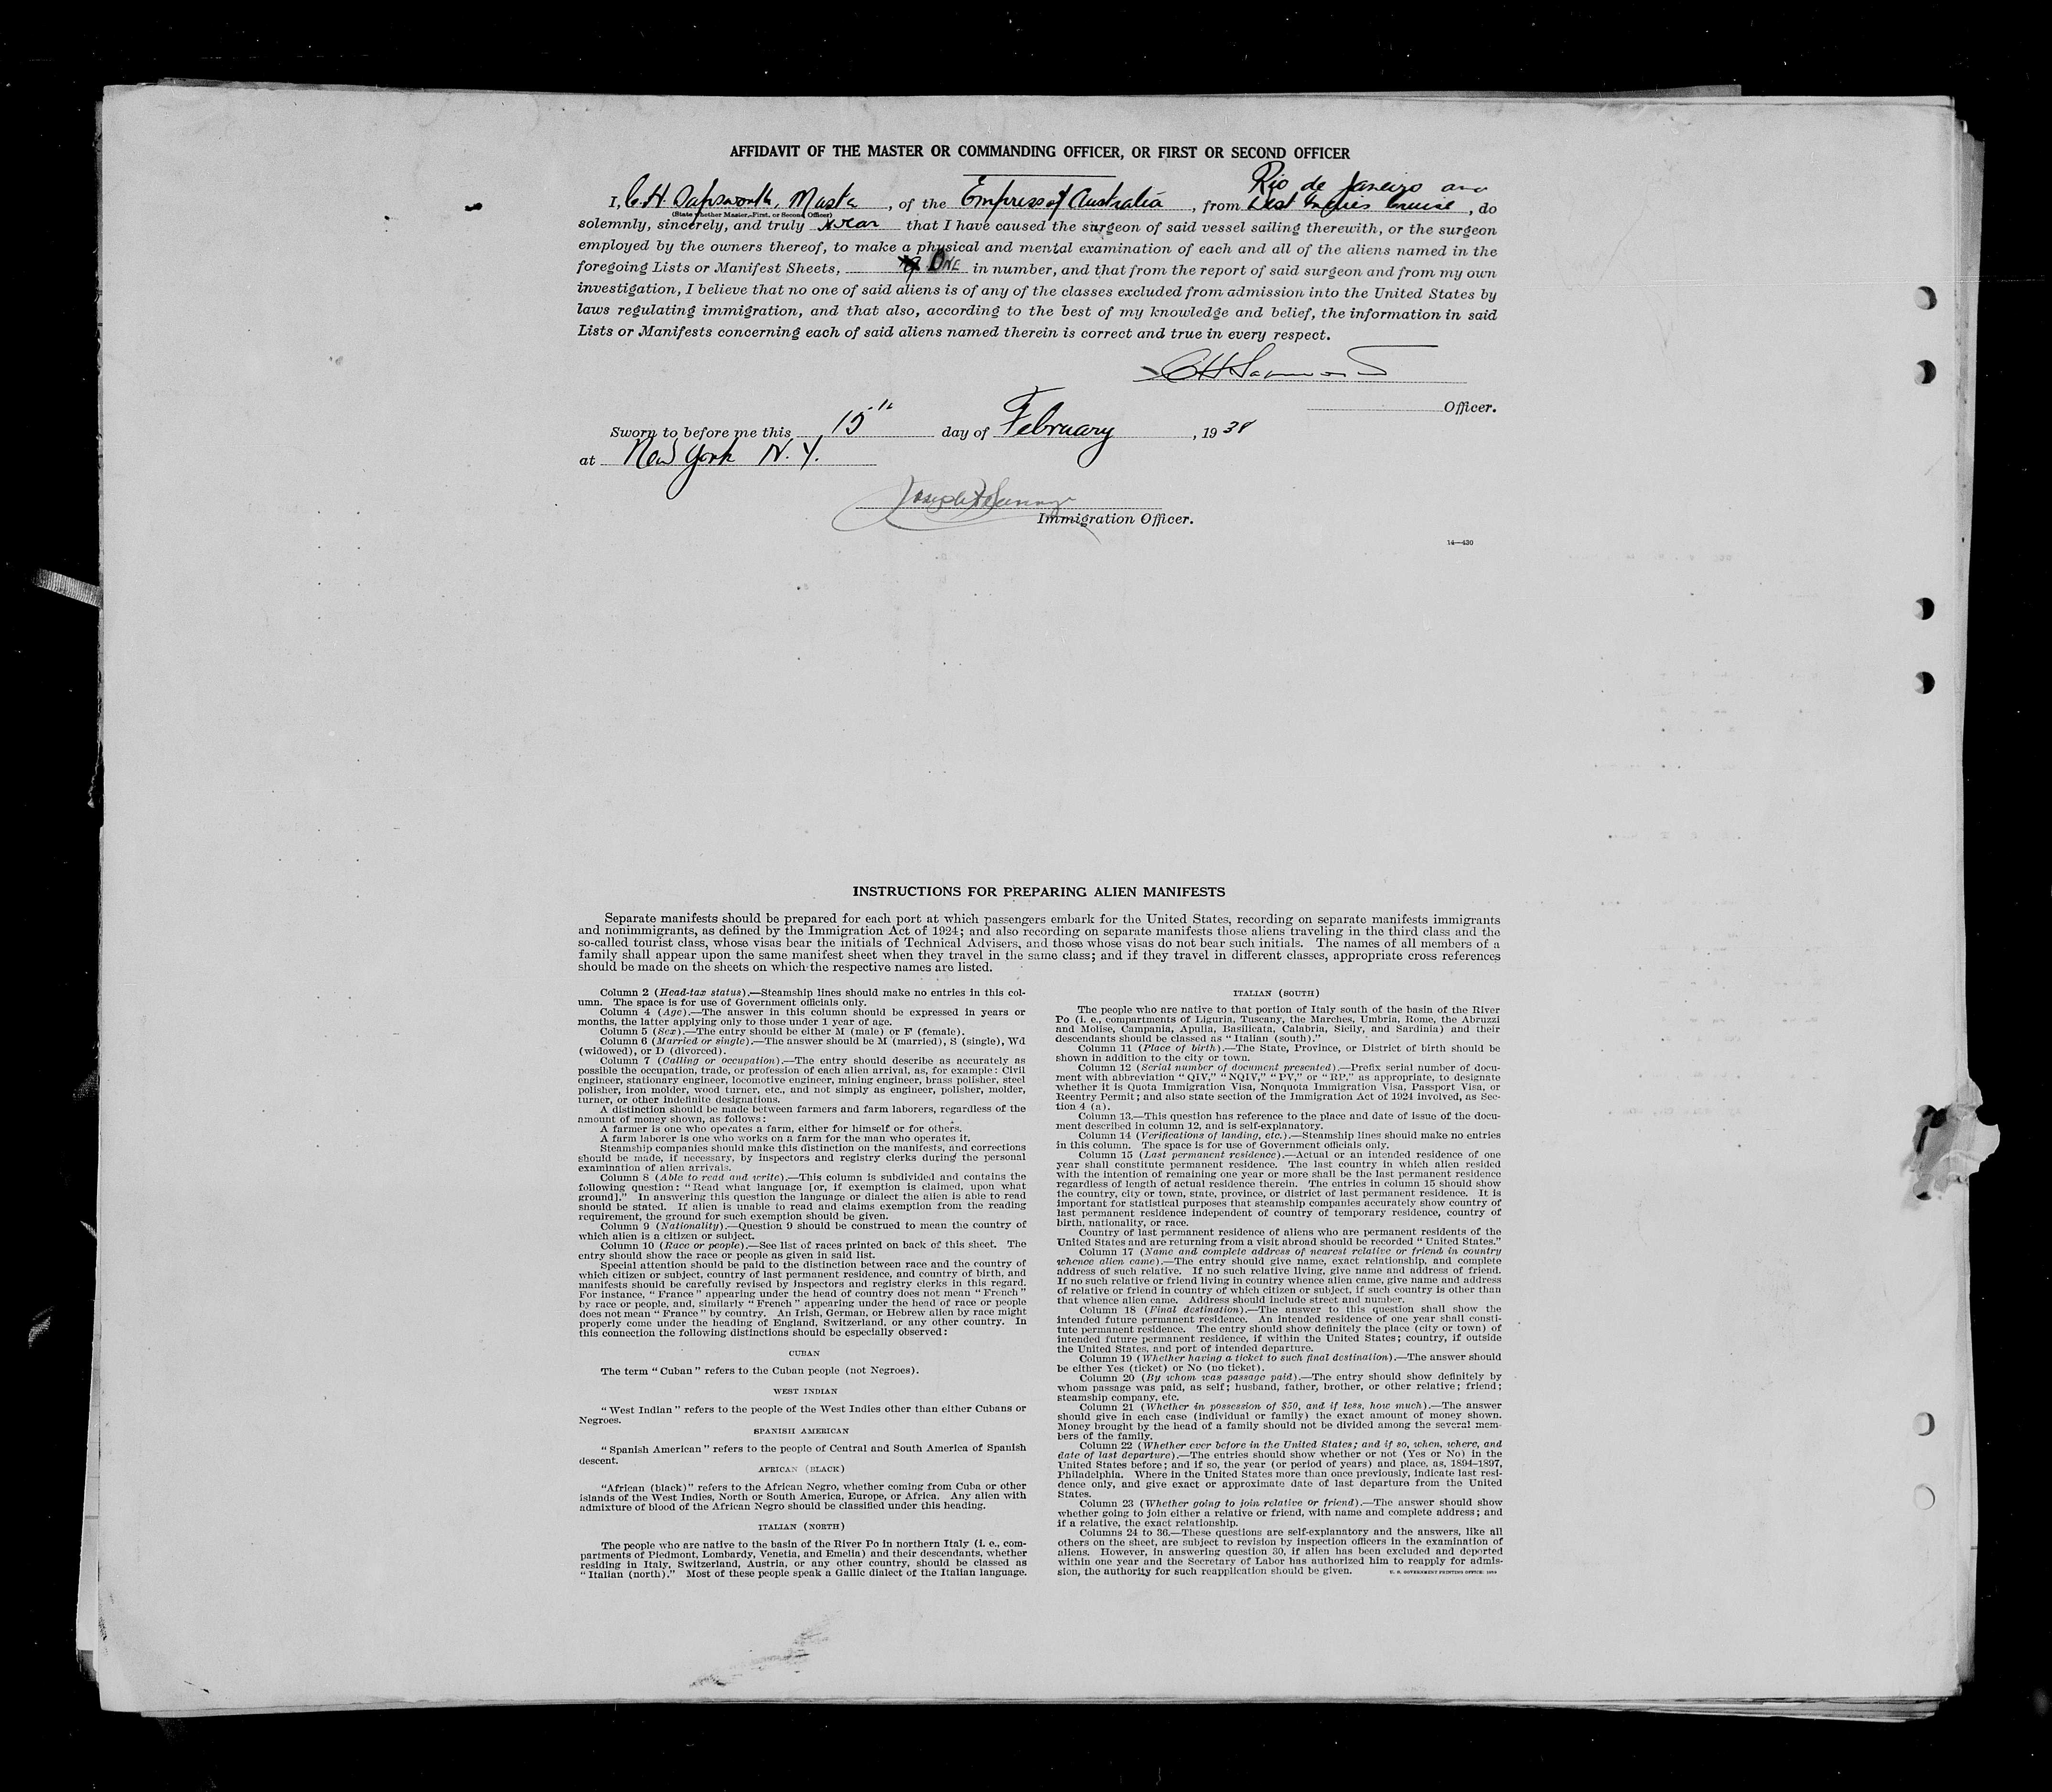 AFFIDAVIT OF THE MASTER OR COMMANDING OFFICER, OR FIRST OR SECOND OFFICER
Rio de Janeiro and
I, C. H. Sapsworth, Master, of the Empress of Australia, from West Indies Cruise, do
(State whether Master, First, or Second Officer)
solemnly, sincerely, and truly swear that I have caused the surgeon of said vessel sailing therewith, or the surgeon
employed by the owners thereof, to make a physical and mental examination of each and all of the aliens named in the
foregoing Lists or Manifest Sheets, ONE in number, and that from the report of said surgeon and from my own
investigation, I believe that no one of said aliens is of any of the classes excluded from admission into the United States by
laws regulating immigration, and that also, according to the best of my knowledge and belief, the information in said
Lists or Manifests concerning each of said aliens named therein is correct and true in every respect.
Officer.
Sworn to before me this 15th day of February, 1938
at New York N. Y.
Immigration Officer.
14—430
INSTRUCTIONS FOR PREPARING ALIEN MANIFESTS
Separate manifests should be prepared for each port at which passengers embark for the United States, recording on separate manifests immigrants
and nonimmigrants, as defined by the Immigration Act of 1924; and also recording on separate manifests those aliens traveling in the third class and the
so-called tourist class, whose visas bear the initials of Technical Advisers, and those whose visas do not bear such initials. The names of all members of a
family shall appear upon the same manifest sheet when they travel in the same class; and if they travel in different classes, appropriate cross references
should be made on the sheets on which the respective names are listed.
Column 2 (Head-tax status).—Steamship lines should make no entries in this col-
umn. The space is for use of Government officials only.
Column 4 (Age).—The answer in this column should be expressed in years or
months, the latter applying only to those under 1 year of age.
Column 5 (Sex).—The entry should be either M (male) or F (female).
Column 6 (Married or single).—The answer should be M (married), S (single), Wd
(widowed), or D (divorced).
Column 7 (Calling or occupation).—The entry should describe as accurately as
possible the occupation, trade, or profession of each alien arrival, as, for example: Civil
engineer, stationary engineer, locomotive engineer, mining engineer, brass polisher, steel
polisher, iron molder, wood turner, etc., and not simply as engineer, polisher, molder,
turner, or other indefinite designations.
A distinction should be made between farmers and farm laborers, regardless of the
amount of money shown, as follows:
A farmer is one who operates a farm, either for himself or for others.
A farm laborer is one who works on a farm for the man who operates it.
Steamship companies should make this distinction on the manifests, and corrections
should be made, if necessary, by inspectors and registry clerks during the personal
examination of alien arrivals.
Column 8 (Able to read and write).—This column is subdivided and contains the
following question: "Read what language [or, if exemption is claimed, upon what
ground]." In answering this question the language or dialect the alien is able to read
should be stated. If alien is unable to read and claims exemption from the reading
requirement, the ground for such exemption should be given.
Column 9 (Nationality).—Question 9 should be construed to mean the country of
which alien is a citizen or subject.
Column 10 (Race or people).—See list of races printed on back of this sheet. The
entry should show the race or people as given in said list.
Special attention should be paid to the distinction between race and the country of
which citizen or subject, country of last permanent residence, and country of birth, and
manifests should be carefully revised by inspectors and registry clerks in this regard.
For instance, "France" appearing under the head of country does not mean "French"
by race or people, and, similarly "French" appearing under the head of race or people
does not mean "France" by country. An Irish, German, or Hebrew alien by race might
properly come under the heading of England, Switzerland, or any other country. In
this connection the following distinctions should be especially observed:
CUBAN
The term "Cuban" refers to the Cuban people (not Negroes).
WEST INDIAN
"West Indian" refers to the people of the West Indies other than either Cubans or
Negroes.
SPANISH AMERICAN
"Spanish American" refers to the people of Central and South America of Spanish
descent.
AFRICAN (BLACK)
"African (black)" refers to the African Negro, whether coming from Cuba or other
islands of the West Indies, North or South America, Europe, or Africa. Any alien with
admixture of blood of the African Negro should be classified under this heading.
ITALIAN (NORTH)
The people who are native to the basin of the River Po in northern Italy (i. e., com-
partments of Piedmont, Lombardy, Venetia, and Emelia) and their descendants, whether
residing in Italy, Switzerland, Austria, or any other country, should be classed as
"Italian (north)." Most of these people speak a Gallic dialect of the Italian language.
ITALIAN (SOUTH)
The people who are native to that portion of Italy south of the basin of the River
Po (i. e., compartments of Liguria, Tuscany, the Marches, Umbria, Rome, the Abruzzi
and Molise, Campania, Apulia, Basilicata, Calabria, Sicily, and Sardinia) and their
descendants should be classed as "Italian (south)."
Column 11 (Place of birth).—The State, Province, or District of birth should be
shown in addition to the city or town.
Column 12 (Serial number of document presented).—Prefix serial number of docu-
ment with abbreviation "QIV," "NQIV," "PV," or "RP," as appropriate, to designate
whether it is Quota Immigration Visa, Nonquota Immigration Visa, Passport Visa, or
Reentry Permit; and also state section of the Immigration Act of 1924 involved, as Sec-
tion 4 (a).
Column 13.—This question has reference to the place and date of issue of the docu-
ment described in column 12, and is self-explanatory.
Column 14 (Verifications of landing, etc.).—Steamship lines should make no entries
in this column. The space is for use of Government officials only.
Column 15 (Last permanent residence).—Actual or an intended residence of one
year shall constitute permanent residence. The last country in which alien resided
with the intention of remaining one year or more shall be the last permanent residence
regardless of length of actual residence therein. The entries in column 15 should show
the country, city or town, state, province, or district of last permanent residence. It is
important for statistical purposes that steamship companies accurately show country of
last permanent residence independent of country of temporary residence, country of
birth, nationality, or race.
Country of last permanent residence of aliens who are permanent residents of the
United States and are returning from a visit abroad should be recorded "United States."
Column 17 (Name and complete address of nearest relative or friend in country
whence alien came).—The entry should give name, exact relationship, and complete
address of such relative. If no such relative living, give name and address of friend.
If no such relative or friend living in country whence alien came, give name and address
of relative or friend in country of which citizen or subject, if such country is other than
that whence alien came. Address should include street and number.
Column 18 (Final destination).—The answer to this question shall show the
intended future permanent residence. An intended residence of one year shall consti-
tute permanent residence. The entry should show definitely the place (city or town) of
intended future permanent residence, if within the United States; country, if outside
the United States, and port of intended departure.
Column 19 (Whether having a ticket to such final destination).—The answer should
be either Yes (ticket) or No (no ticket).
Column 20 (By whom was passage paid).—The entry should show definitely by
whom passage was paid, as self; husband, father, brother, or other relative; friend;
steamship company, etc.
Column 21 (Whether in possession of $50, and if less, how much).—The answer
should give in each case (individual or family) the exact amount of money shown.
Money brought by the head of a family should not be divided among the several mem-
bers of the family.
Column 22 (Whether ever before in the United States; and if so, when, where, and
date of last departure).—The entries should show whether or not (Yes or No) in the
United States before; and if so, the year (or period of years) and place, as, 1894–1897,
Philadelphia. Where in the United States more than once previously, indicate last resi-
dence only, and give exact or approximate date of last departure from the United
States.
Column 23 (Whether going to join relative or friend).—The answer should show
whether going to join either a relative or friend, with name and complete address; and
if a relative, the exact relationship.
Columns 24 to 36.—These questions are self-explanatory and the answers, like all
others on the sheet, are subject to revision by inspection officers in the examination of
aliens. However, in answering question 30, if alien has been excluded and deported
within one year and the Secretary of Labor has authorized him to reapply for admis-
sion, the authority for such reapplication should be given.
U. S. GOVERNMENT PRINTING OFFICE